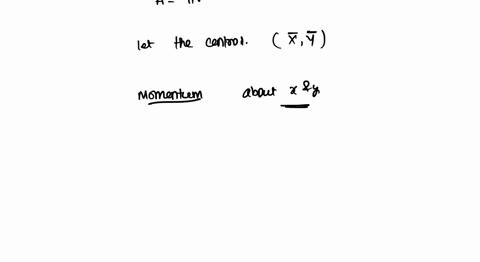 let the control. (X̅, Y̅)
Momentum about x & y